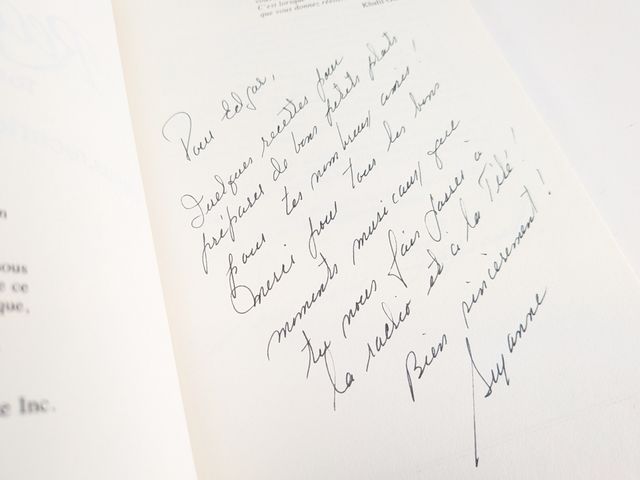 C'est lorsque
que vous donnez
Khalil
Pour Edgar,
Quelques recettes pour
préparer de bons petits plats
pour tes nombreux amis!
Merci pour tous les bons
moments musicaux que
tu nous fais passer à
la radio et à la Télé!
Bien sincerement!
Suzanne
ous
e ce
que,
e Inc.